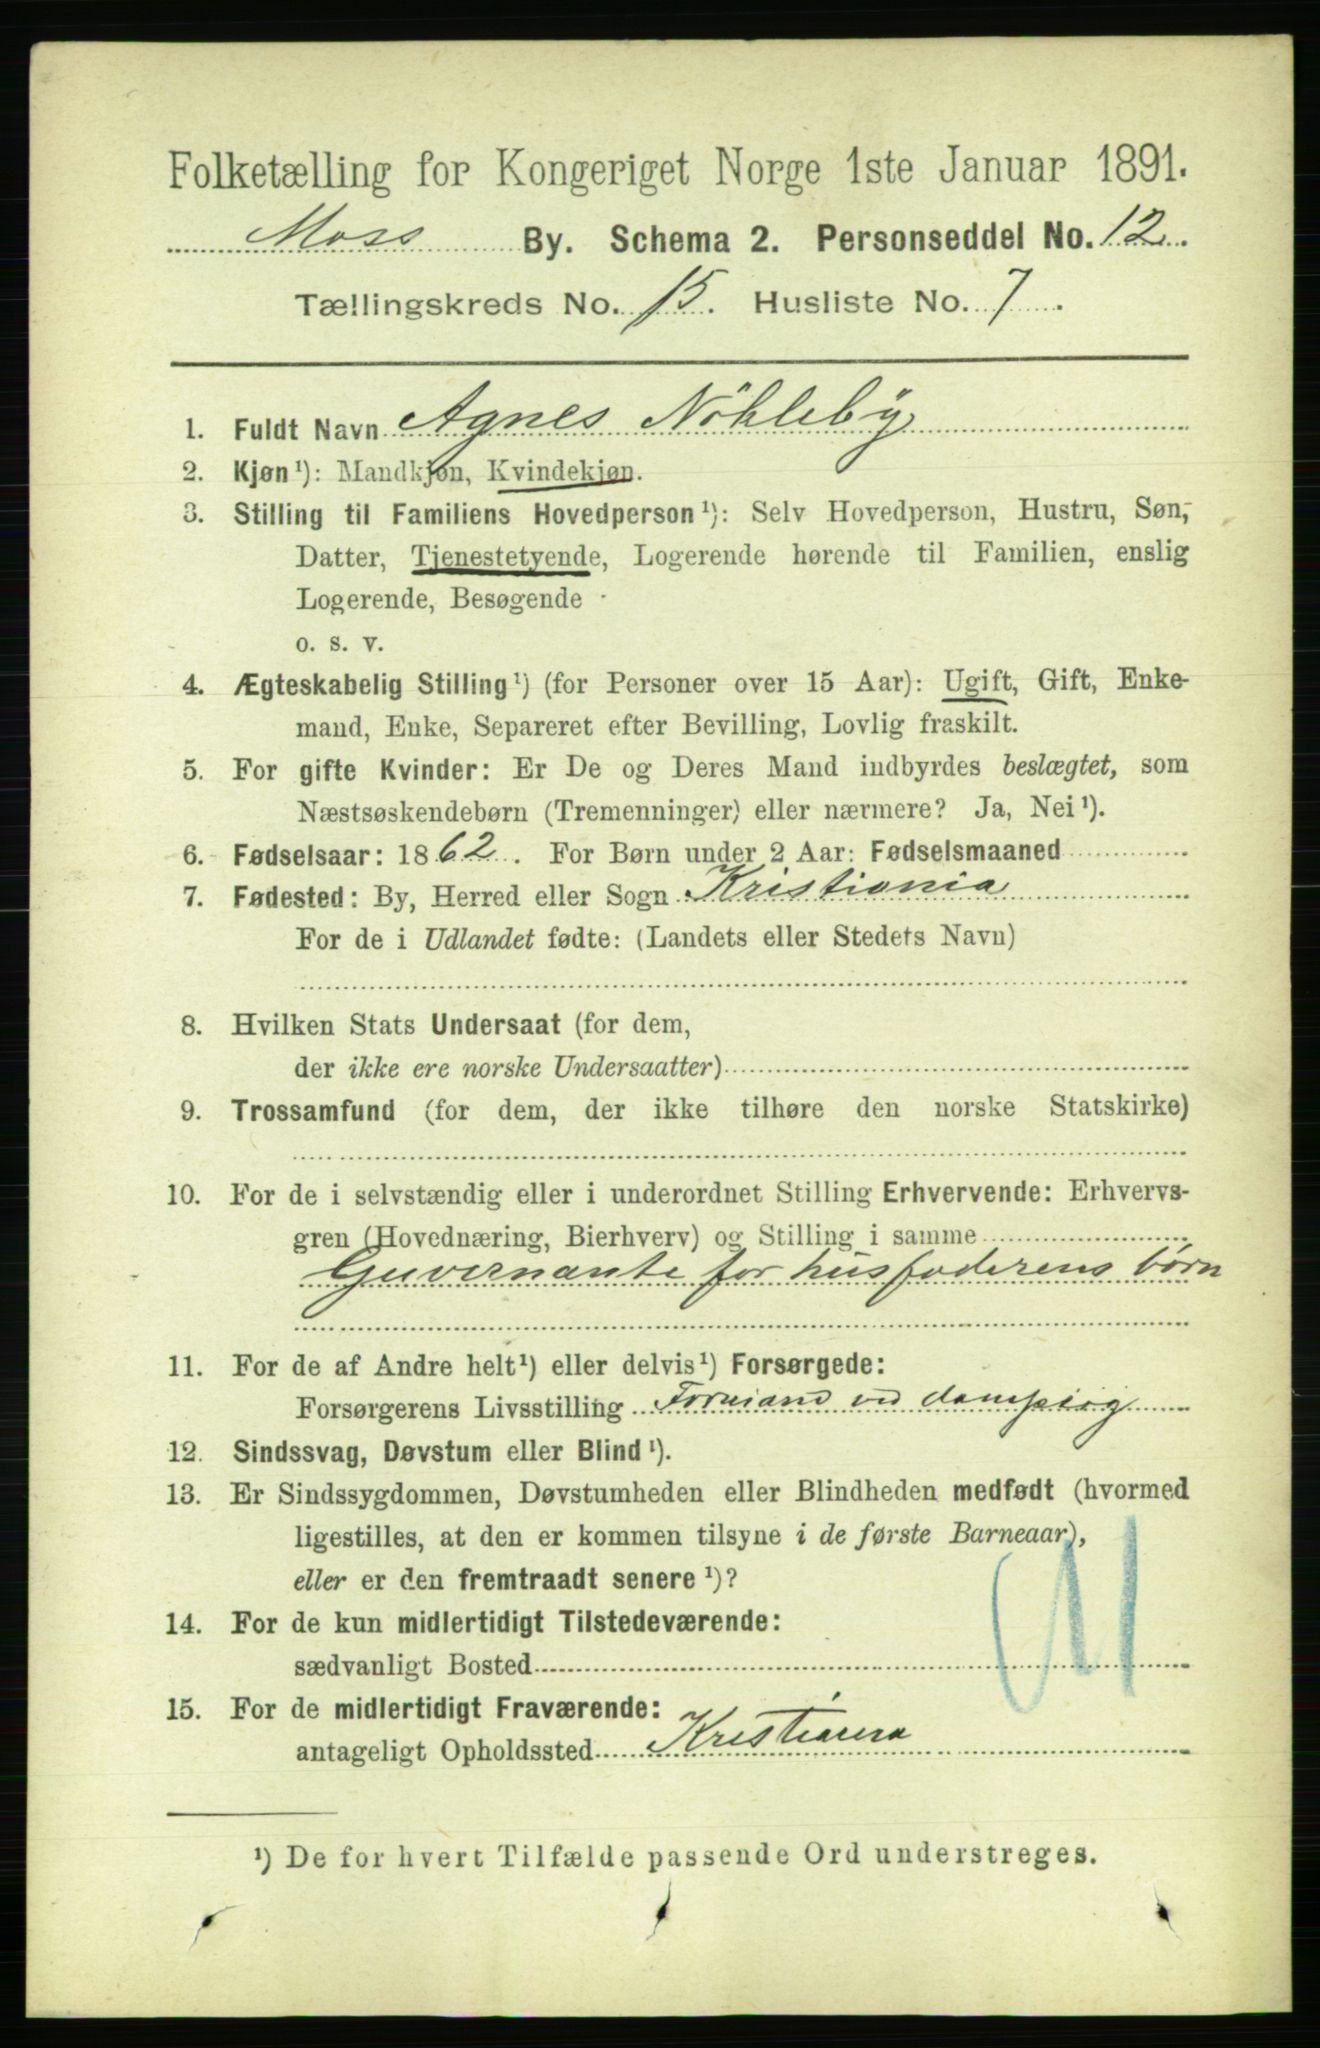 Folketælling for Kongeriget Norge 1ste Januar 1891.
Moss By. Schema 2. Personseddel No. 12.
Tællingskreds No. 15. Husliste No. 7.
1. Fuldt Navn Agnes Nökleby
2. Kjøn¹): Mandkjøn, Kvindekjøn.
3. Stilling til Familiens Hovedperson¹): Selv Hovedperson, Hustru, Søn,
Datter, Tjenestetyende, Logerende hørende til Familien, enslig
Logerende, Besøgende
o. s. v.
4. Ægteskabelig Stilling¹) (for Personer over 15 Aar): Ugift, Gift, Enke-
mand, Enke, Separeret efter Bevilling, Lovlig fraskilt.
5. For gifte Kvinder: Er De og Deres Mand indbyrdes beslægtet, som
Næstsøskendebørn (Tremenninger) eller nærmere? Ja, Nei¹).
6. Fødselsaar: 1862. For Børn under 2 Aar: Fødselsmaaned
7. Fødested: By, Herred eller Sogn Kristiania
For de i Udlandet fødte: (Landets eller Stedets Navn)
8. Hvilken Stats Undersaat (for dem,
der ikke ere norske Undersaatter)
9. Trossamfund (for dem, der ikke tilhøre den norske Statskirke)
10. For de i selvstændig eller i underordnet Stilling Erhvervende: Erhvervs-
gren (Hovednæring, Bierhverv) og Stilling i samme
Guvernante for husfaderens børn
11. For de af Andre helt¹) eller delvis¹) Forsørgede:
Forsørgerens Livsstilling Formand ved dampsag
12. Sindssvag, Døvstum eller Blind¹).
13. Er Sindssygdommen, Døvstumheden eller Blindheden medfødt (hvormed
ligestilles, at den er kommen tilsyne i de første Barneaar),
eller er den fremtraadt senere¹)?
14. For de kun midlertidigt Tilstedeværende:
sædvanligt Bosted
15. For de midlertidigt Fraværende:
antageligt Opholdssted Kristiania
¹) De for hvert Tilfælde passende Ord understreges.